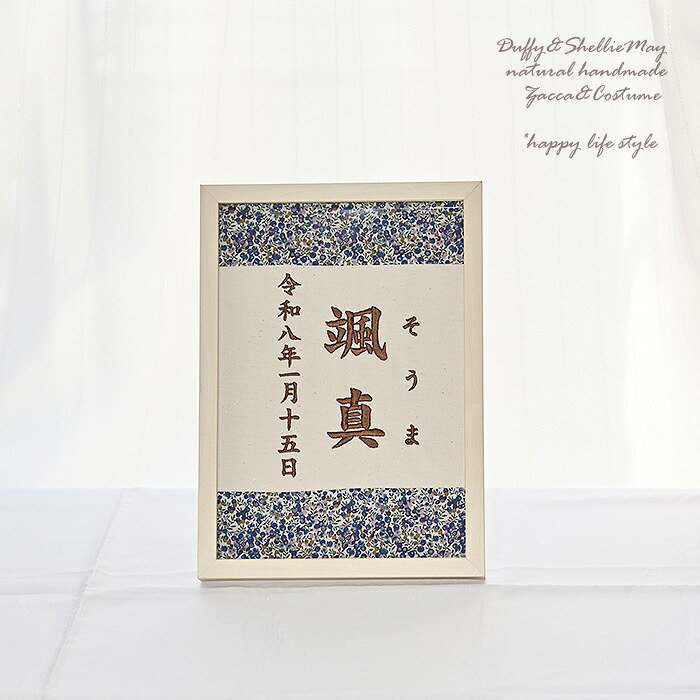 Duffy & ShellieMay
natural handmade
Zacca & Costume
*happy life style
そうま
颯真
令和八年一月十五日